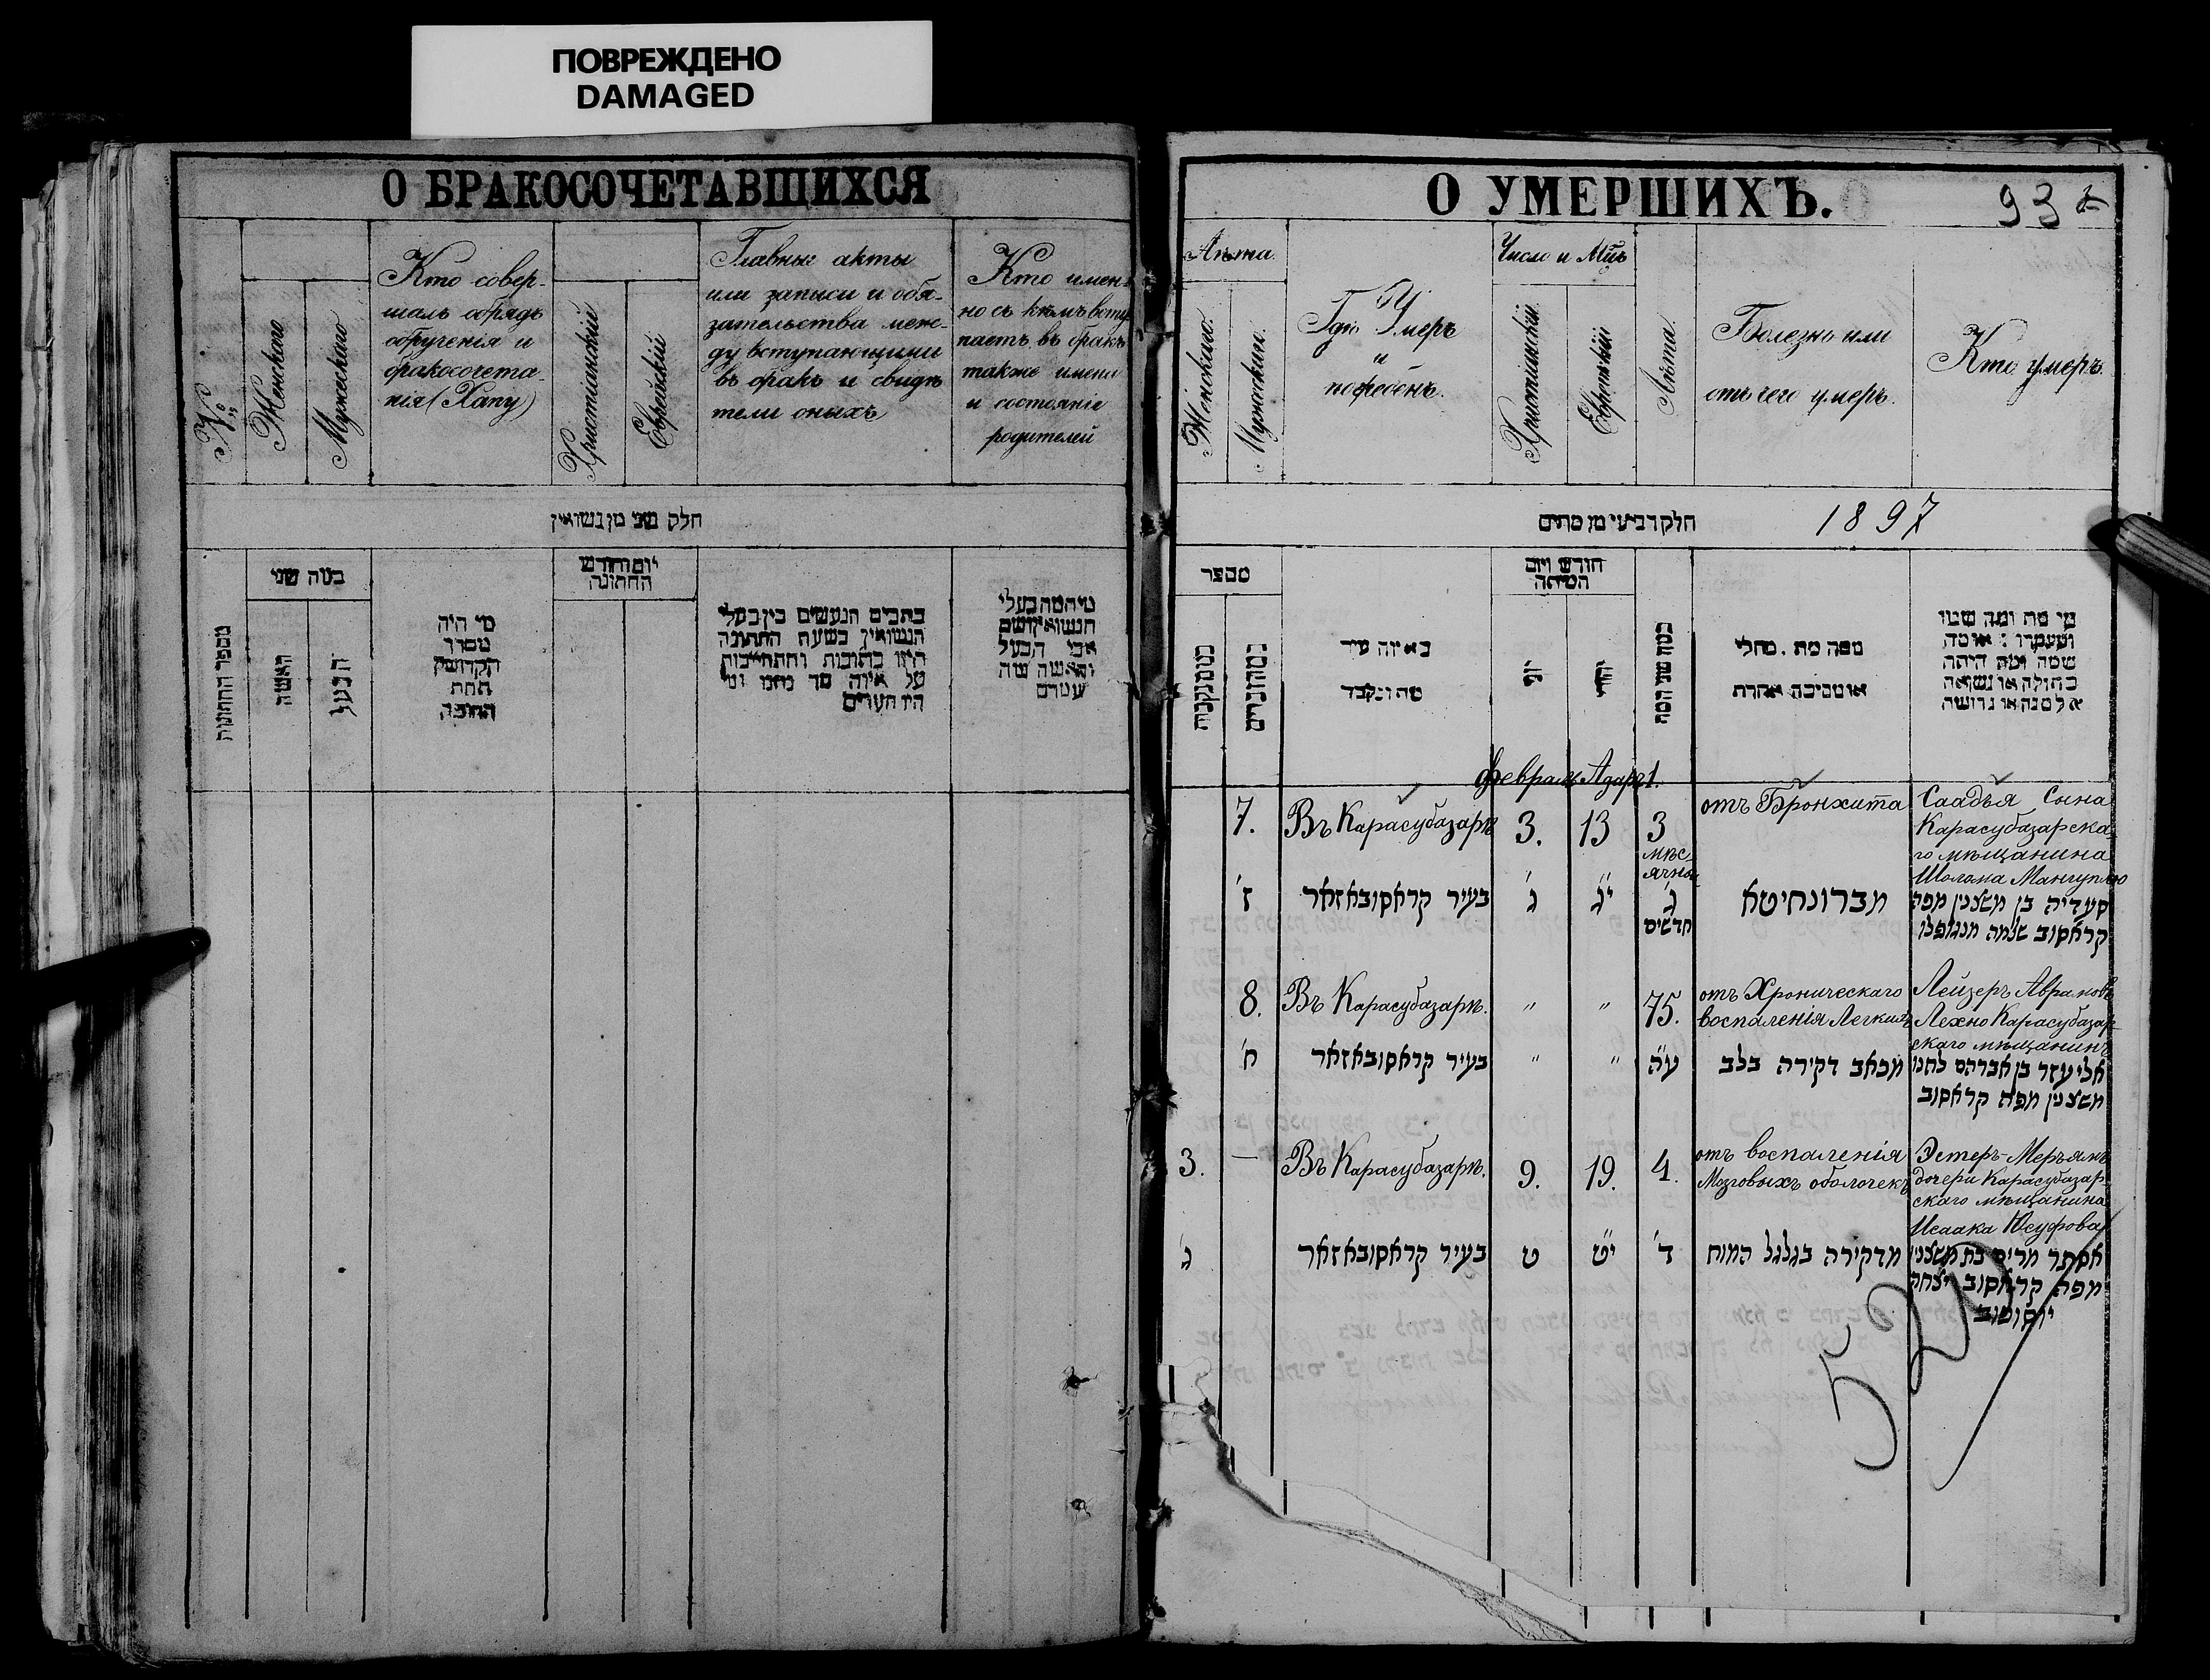 ПОВРЕЖДЕНО
DAMAGED
О БРАКОСОЧЕТАВШИХСЯ
№
Женского
Мужеского
Кто совер-
шалъ обрядъ
обрученія и
бракосочета-
нія (Хапу)
Христіанскій
Еврейскій
Главные акты
или записи и обя-
зательства меж-
ду вступающими
въ бракъ и свидѣ
тели оныхъ
Кто имен-
но съ кѣмъ всту
паетъ въ бракъ
также имена
и состояніе
родителей
חלק שני מן נשואין
מספר החתונות
בטה שני
האשה
הבעל
מי היה
מסדר
הקדושין
תחת
החופה
יום וחודש
החתונה
כתבים הנעשים בין בעלי
הנשואין בשעת החתונה
היו כתובות והתחייבות
על איזה סך נתנו ומי
היו העדים
אבי הבעל
О УМЕРШИХЪ.
93
Лѣта.
Женскаго.
Мужескаго.
Гдѣ Умеръ
и
погребенъ.
Число и Мцъ
Христіанскій
Еврейскій
Лѣта.
Болезнь или
отъ чего умеръ.
Кто умеръ.
חלק רביעי מן מתים
1897
מספר
באיזה עיר
מת ונקבר
חודש ויום
המיתה
יהודי
ממה מת . מחלי
או מסיבה אחרת
מי מת ומה שמו
שמה ומה היתה
בתולה או נשואה
אלמנה או גרושה
Февраль Адаръ 1.
7.
Въ Карасубазарѣ
3.
13
3
мѣс-
ячны
отъ Бронхита
Саадья Сына
Карасубазарска-
го мѣщанина
Шолома Мангупли
ז'
בעיר קראסובאזאר
ג'
י"ג
ג'
חדשים
מברונחיטא
סעדיה בן משצנין מפה
קראסוב שלמה מנגופלי
8.
Въ Карасубазарѣ.
"
"
75.
отъ Хроническаго
воспаленія Легкихъ
Лейзеръ Аврамовъ
Лехно Карасубазар-
скаго мѣщанинъ
ח'
בעיר קראסובאזאר
"
"
ע"ה
מכאב דקירה בלב
אליעזר בן אברהם לחנו
משצנין מפה קראסוב
3.
—
Въ Карасубазарѣ.
9.
19.
4.
отъ воспаленія
Мозговыхъ оболочекъ
Эстеръ-Мерьямъ
дочери Карасубазар-
скаго мѣщанина
Исаака Юсуфова
ג'
בעיר קראסובאזאר
ט
י"ט
ד'
מדקירה בגלגל המוח
אסתר מרים בת משצנין
מפה קראסוב יצחק
יוסופוב
52